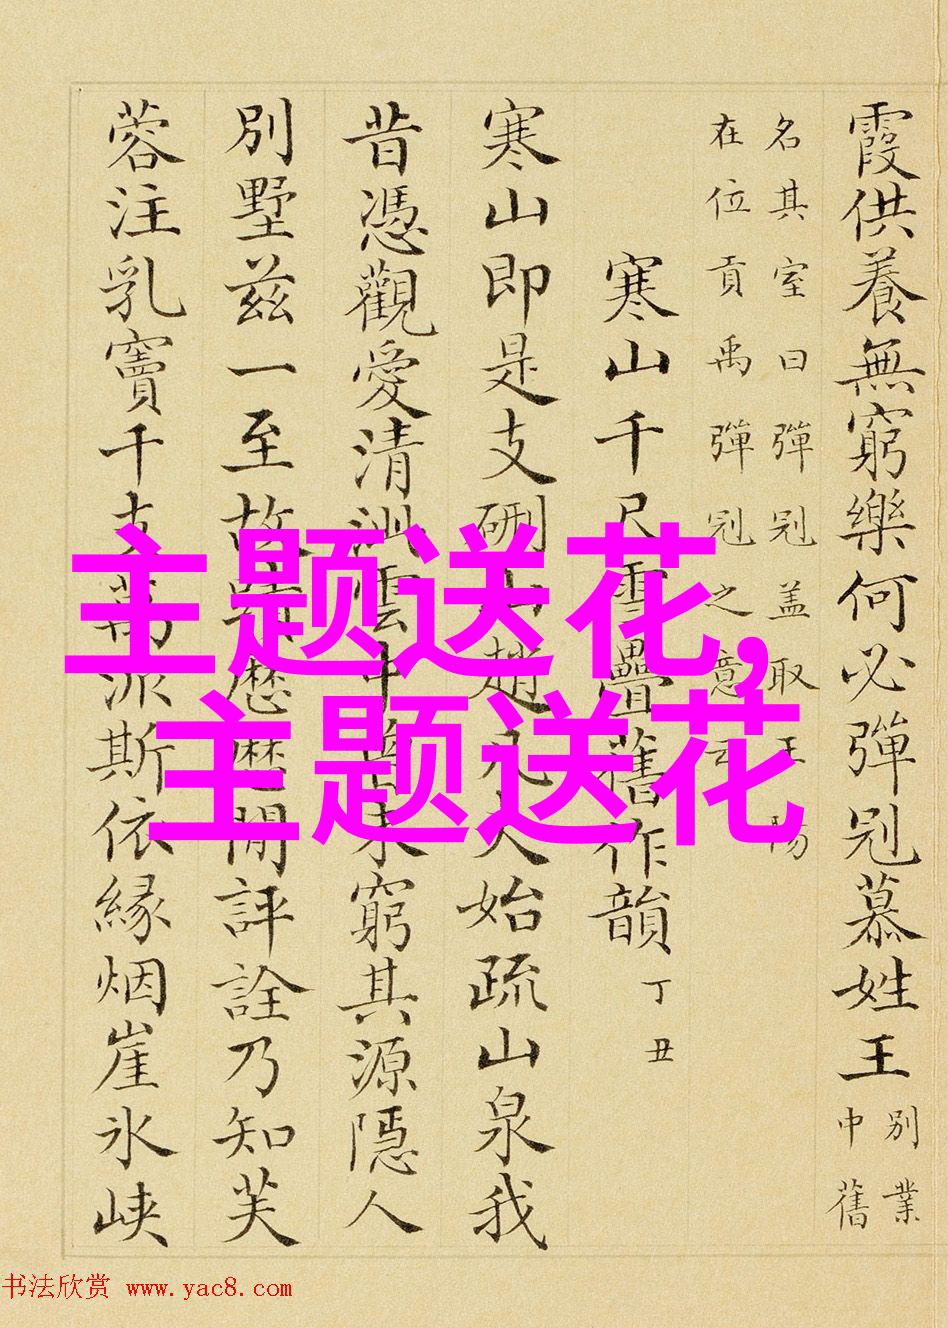 霞供養無窮樂何必彈冠慕姓王
別業
中舊
名其室曰彈冠蓋取王陽
在位貢禹彈冠之意云
寒山千尺雪疊舊作韻
丁丑
寒山即是支硎趙凡夫始疏山泉我
昔憑觀愛清泚雲中未窮其源隱人
別墅兹一至故蹟歷歷閒評詮乃知芙
蓉注乳竇千支萬派斯依緣烟崖氷峽
主题送花,
主题送花
书法欣赏 www.yac8.com